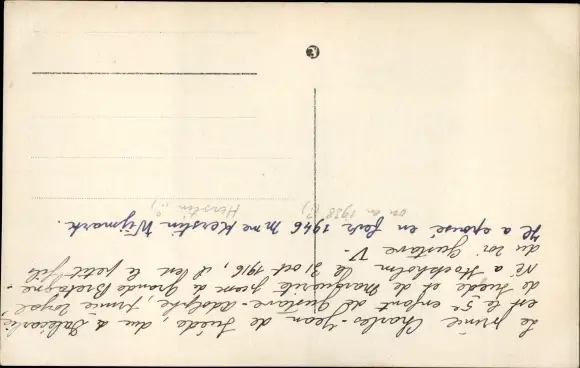 Le prince Charles-Jean de Suède, duc de Dalécarlie
est le 5e enfant de Gustave-Adolphe, prince royal
de Suède et de Marguerite princ. de Grande Bretagne.
Né à Stockholm le 31 oct 1916, il est le petit fils
du roi Gustave V.
Il a épousé en fevr 1946 Mme Kerstin Wijmark.
ou en 1938 (?)
Kerstin